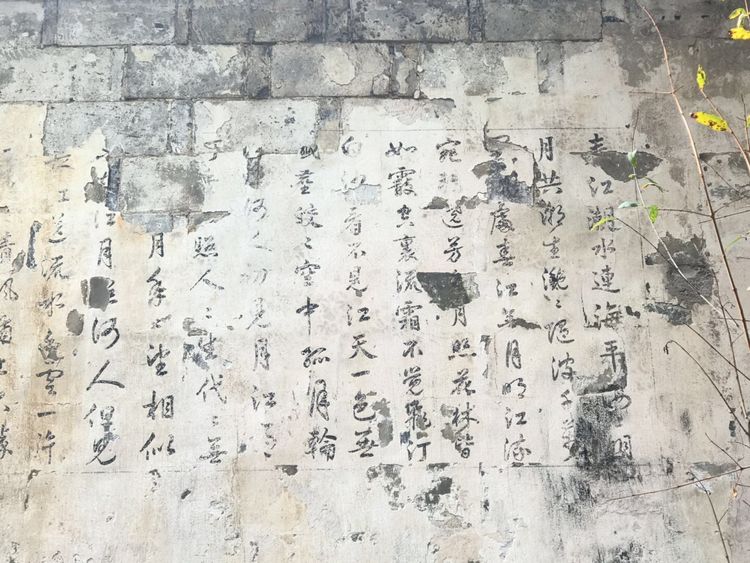 春江潮水連海平 明
月共潮生灧〻隨波千萬
處春江無月明江流
宛轉遶芳 月照花林皆
如霰空裏流霜不覺飛汀
白沙看不見江天一色無
塵皎〻空中孤月輪
何人初見月江月
照人〻生代〻無
月年〻望相似
江月待何人但見
江送流水 雲一片